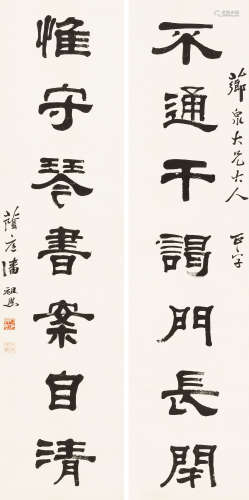 薌泉大兄大人正字
不通干謁門長閉
惟守琴書案自清
蔭庭潘祖